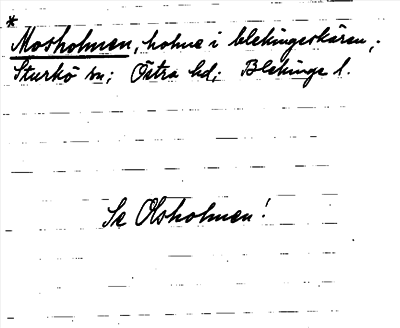 *
Mosholmen, holme i blekingeskären;
Sturkö sn; Östra hd; Blekinge l.
Se Olsholmen!